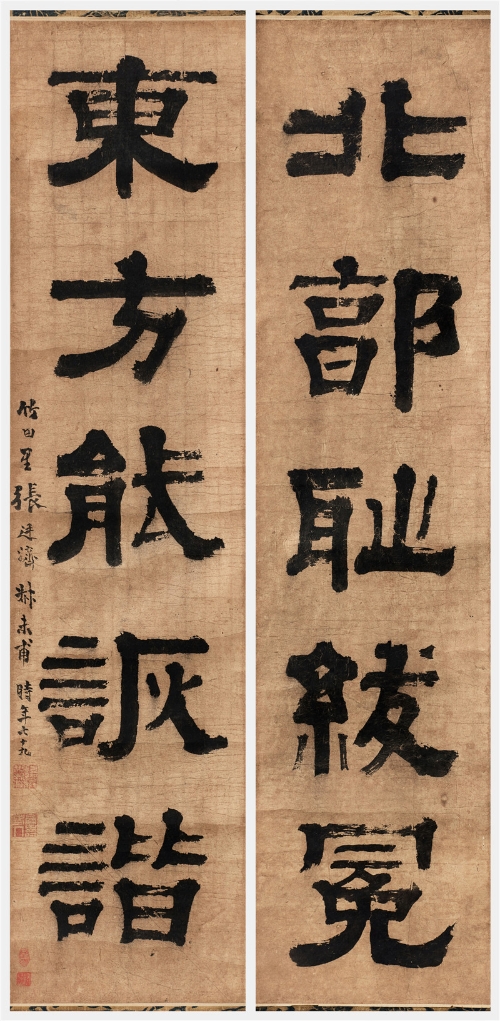 北郭耻紱冕
東方能詼諧
竹田里張廷濟叔未甫時年七十九